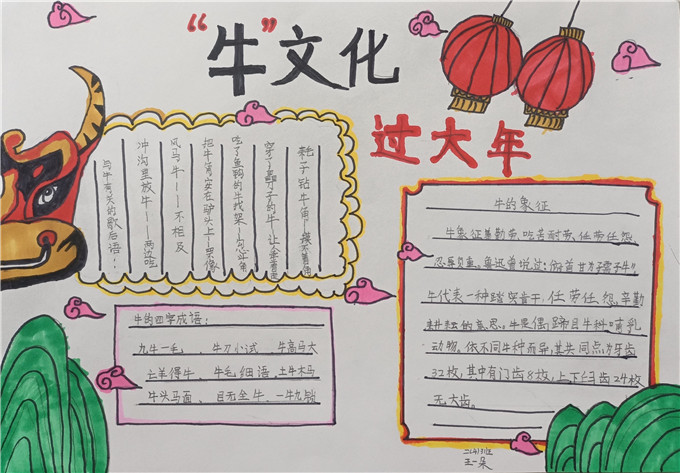 “牛”文化
过大年
与牛有关的歇后语：
冲沟里放牛——两边吃
风马牛——不相及
把牛角安在驴头上——
吃了鱼钩的牛打架——勾心斗角
穿了鼻子的牛——让人牵着走
耗子钻牛角——
牛的四字成语：
九牛一毛、牛刀小试 牛高马大
亡羊得牛、牛毛细语、土牛木马
牛头马面、目无全牛、一牛九锁
牛的象征
牛象征着勤劳、吃苦耐劳、任劳任怨
忍辱负重。鲁迅曾说过：“俯首甘为孺子牛”
牛代表一种踏实肯干、任劳任怨、辛勤
耕耘的意思。牛是偶蹄目牛种哺乳
动物。依不同牛种而异，其共同点为牙齿
32枚，其中有门齿8枚，上下臼齿24枚
无大齿。
二(4)班
王一朵